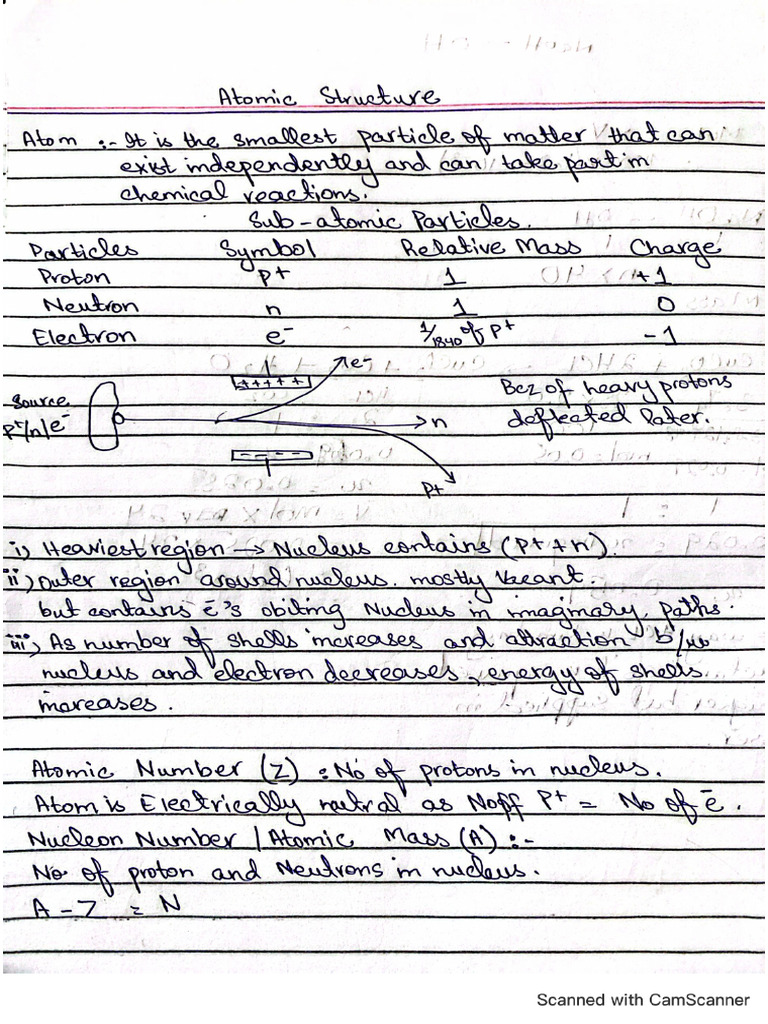 Atomic Structure
Atom :- It is the smallest particle of matter that can
exist independently and can take part in
chemical reactions.
Sub-atomic Particles.
Particles Symbol Relative Mass Charge
Proton P+ 1 +1
Neutron n 1 0
Electron e- 1/1840 of P+ -1
+++++ e-
Source Bcz of heavy protons
P+/n/e- n deflected later.
P+
i) Heaviest region → Nucleus contains (P+ + n).
ii) outer region around nucleus. mostly vacant
but contains ē's obiting Nucleus in imaginary paths.
iii) As number of shells increases and attraction b/w
nucleus and electron decreases, energy of shells
increases.
Atomic Number (Z) : No of protons in nucleus.
Atom is Electrically neutral as No of P+ = No of ē.
Nucleon Number / Atomic Mass (A) :-
No of proton and Neutrons in nucleus.
A - Z = N
Scanned with CamScanner